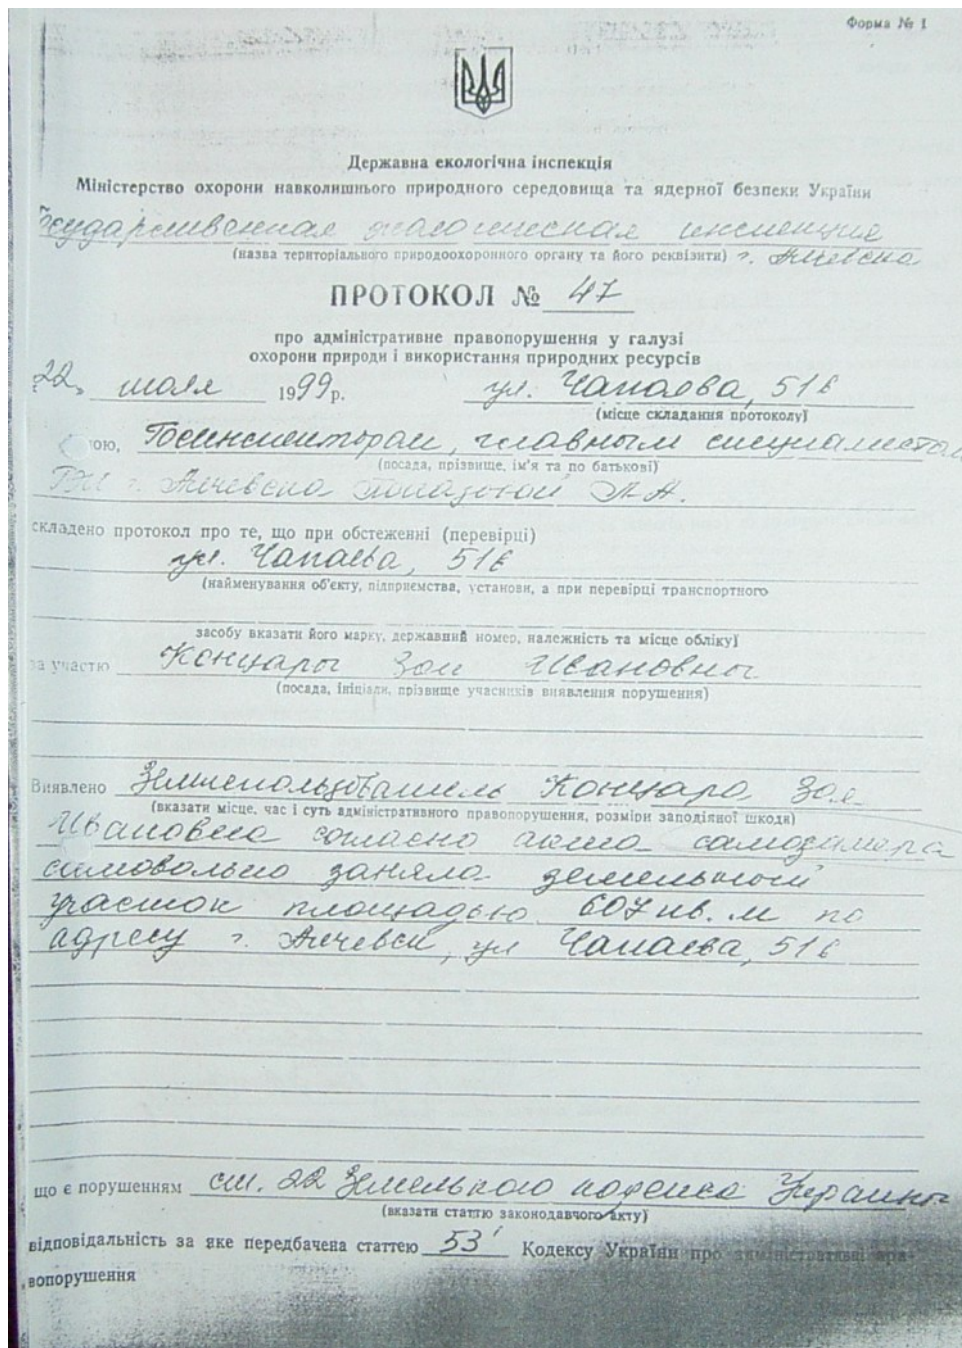 Форма № 1
Державна екологічна інспекція
Міністерство охорони навколишнього природного середовища та ядерної безпеки України
Государственная экологическая инспекция
(назва територіального природоохоронного органу та його реквізити) г. Алчевска
ПРОТОКОЛ № 47
про адміністративне правопорушення у галузі
охорони природи і використання природних ресурсів
22 июля 1999р. ул. Чапаева, 51б
(місце складання протоколу)
ною, Госинспектором, главным специалистом
(посада, прізвище, ім'я та по батькові)
г. Алчевска Л.А.
складено протокол про те, що при обстеженні (перевірці)
ул. Чапаева, 51б
(найменування об'єкту, підприємства, установи, а при перевірці транспортного
засобу вказати його марку, державний номер, належність та місце обліку)
за участю Концары Зои Ивановны
(посада, ініціали, прізвище учасників виявлення порушення)
Виявлено Землепользователь Концара Зоя
(вказати місце, час і суть адміністративного правопорушення, розміри заподіяної шкоди)
Ивановна согласно акта самозамера
самовольно заняла земельный
участок площадью 607 кв. м по
адресу г. Алчевск, ул Чапаева, 51б
що є порушенням ст. 22 Земельного кодекса Украины
(вказати статтю законодавчого акту)
відповідальність за яке передбачена статтею 53' Кодексу України про адміністративні пра-
вопорушення